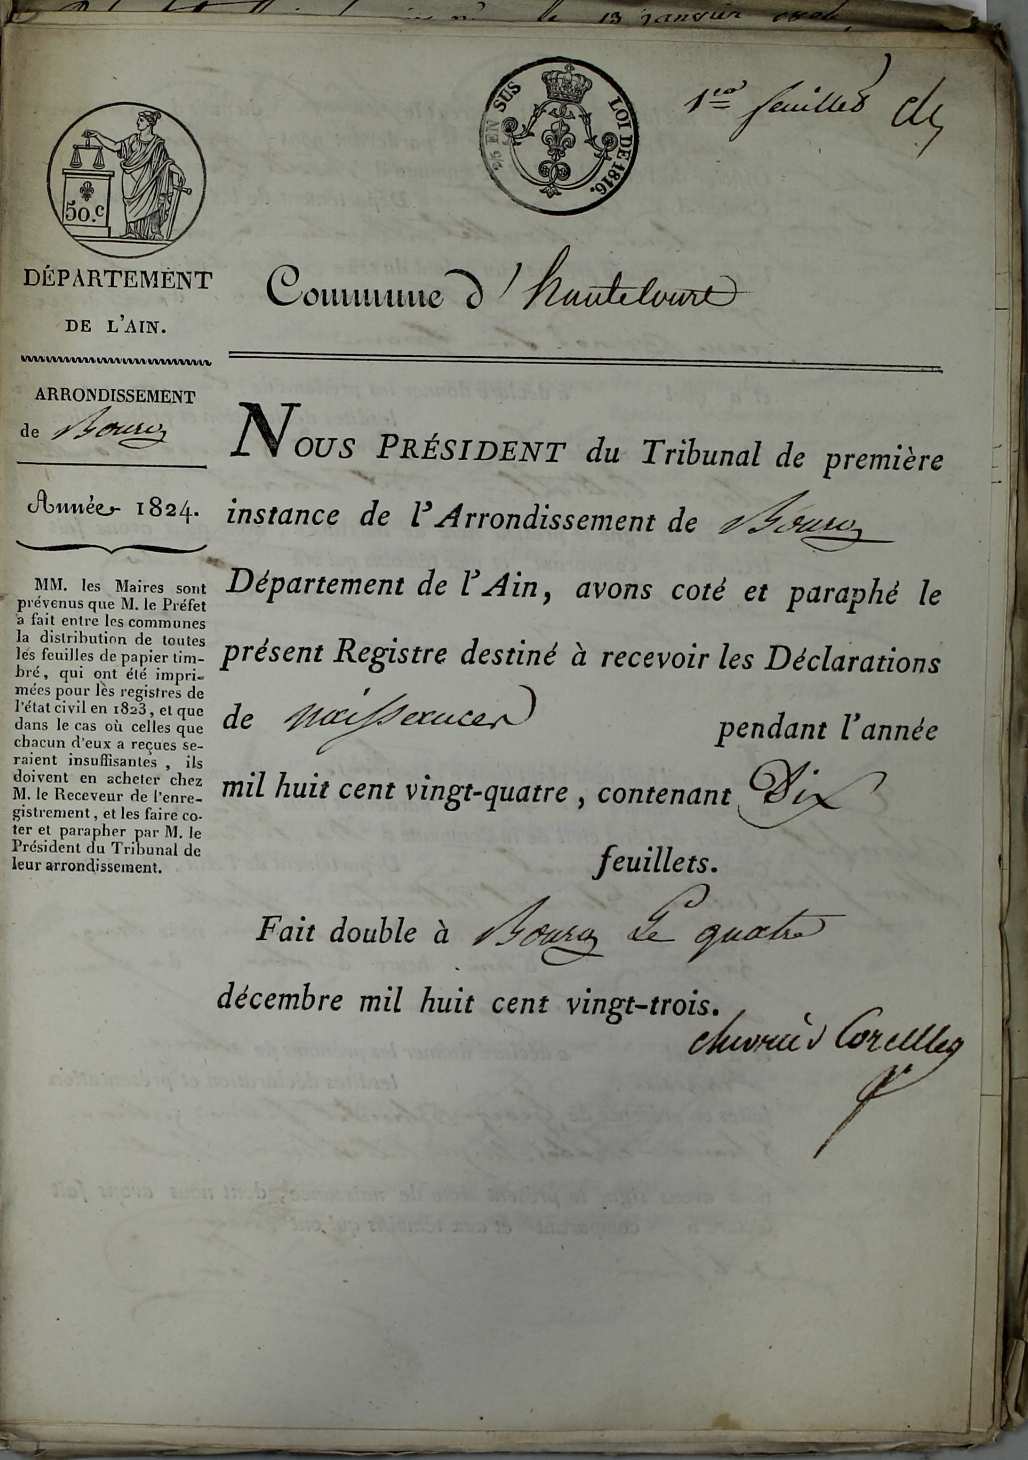 le 13 janvier
1er feuillet
25 EN SUS
LOI DE 1816.
50.c
DÉPARTEMENT
DE L'AIN.
Commune d'hautecourt
ARRONDISSEMENT
de Bourg
Année 1824.
MM. les Maires sont
prévenus que M. le Préfet
a fait entre les communes
la distribution de toutes
les feuilles de papier tim-
bré, qui ont été impri-
mées pour les registres de
l'état civil en 1823, et que
dans le cas où celles que
chacun d'eux a reçues se-
raient insuffisantes, ils
doivent en acheter chez
M. le Receveur de l'enre-
gistrement, et les faire co-
ter et parapher par M. le
Président du Tribunal de
leur arrondissement.
NOUS PRÉSIDENT du Tribunal de première
instance de l'Arrondissement de Bourg
Département de l'Ain, avons coté et paraphé le
présent Registre destiné à recevoir les Déclarations
de naissances pendant l'année
mil huit cent vingt-quatre, contenant Dix
feuillets.
Fait double à Bourg Le quatre
décembre mil huit cent vingt-trois.